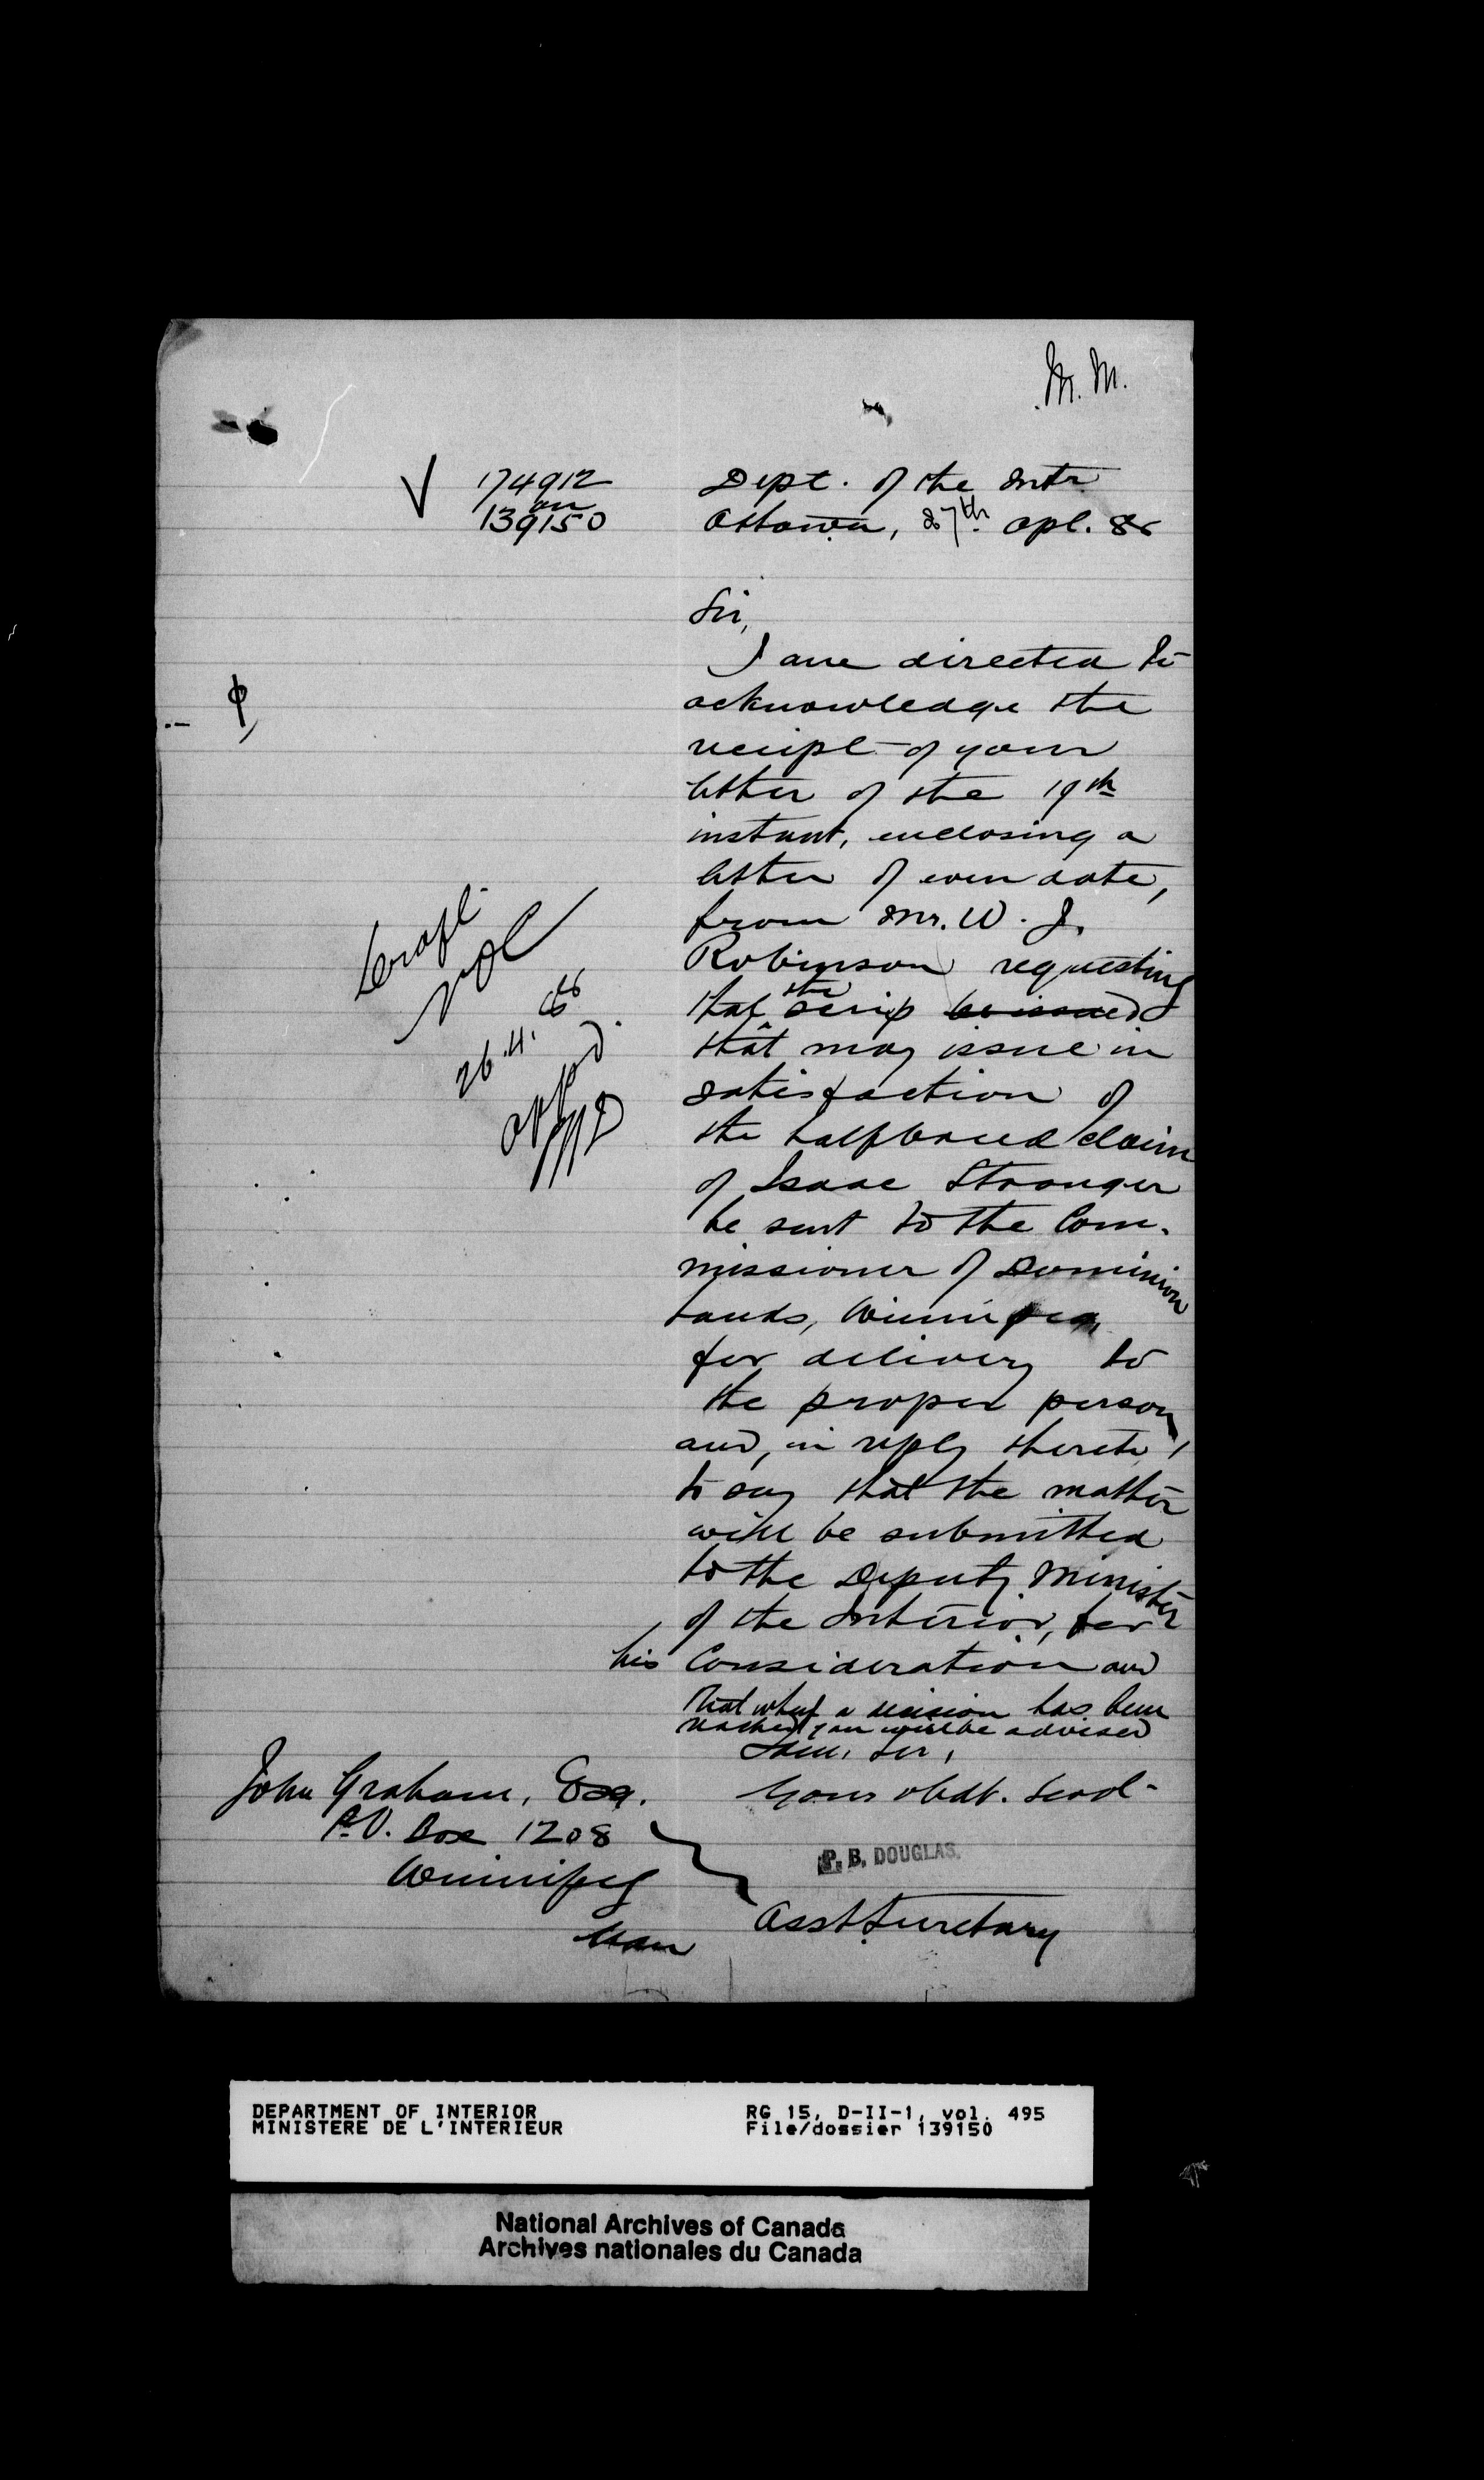 M. M.
174912
on
139150
Dept. of the Intr
Ottawa, 27th. Apl. 88
Sir,
I am directed to
acknowledge the
receipt of your
letter of the 19th
instant, enclosing a
letter of even date,
from Mr. W. J.
Robinson requesting
that the scrip be issued
that may issue in
satisfaction of
the halfbreed claim
of Isaac Stranger
be sent to the Com-
missioner of Dominion
Lands, Winnipeg,
for delivery to
the proper person,
and, in reply thereto,
to say that the matter
will be submitted
to the Deputy Minister
of the Interior, for
his Consideration and
that when a decision has been
reached you will be advised
I am, Sir,
Your obdt. Servt
P. B. DOUGLAS.
Asst Secretary
26.4.88
appd.
John Graham, Esq.
P.O. Box 1208
Winnipeg
Man
DEPARTMENT OF INTERIOR
MINISTERE DE L'INTERIEUR
RG 15, D-II-1, vol. 495
File/dossier 139150
National Archives of Canada
Archives nationales du Canada